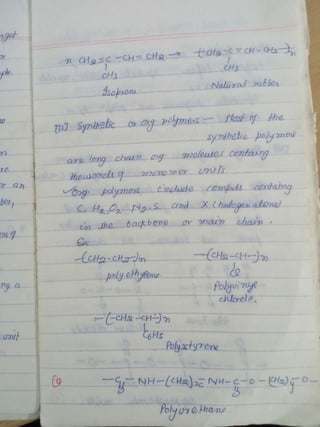 n CH2=C-CH=CH2 → -(CH2-C=CH-CH2-)n
CH3 CH3
Isoprene Natural rubber
[II] Synthetic or org polymers - Most of the
synthetic polymers
are long chain org molecules containg
thousands of monomer units
Org polymers include compds containg
C, H2, O2, N2, S and X (halogen atom)
in the backbone or main chain.
Ex
-(CH2-CH2-)n -(CH2-CH-)n
polyethylene Cl
Polyvinyl
chloride.
-(-CH2-CH-)n
C6H5
Polystyrene
-C-NH-(CH2)x NH-C-O-(CH2)y-O-
O O
Polyurethane.